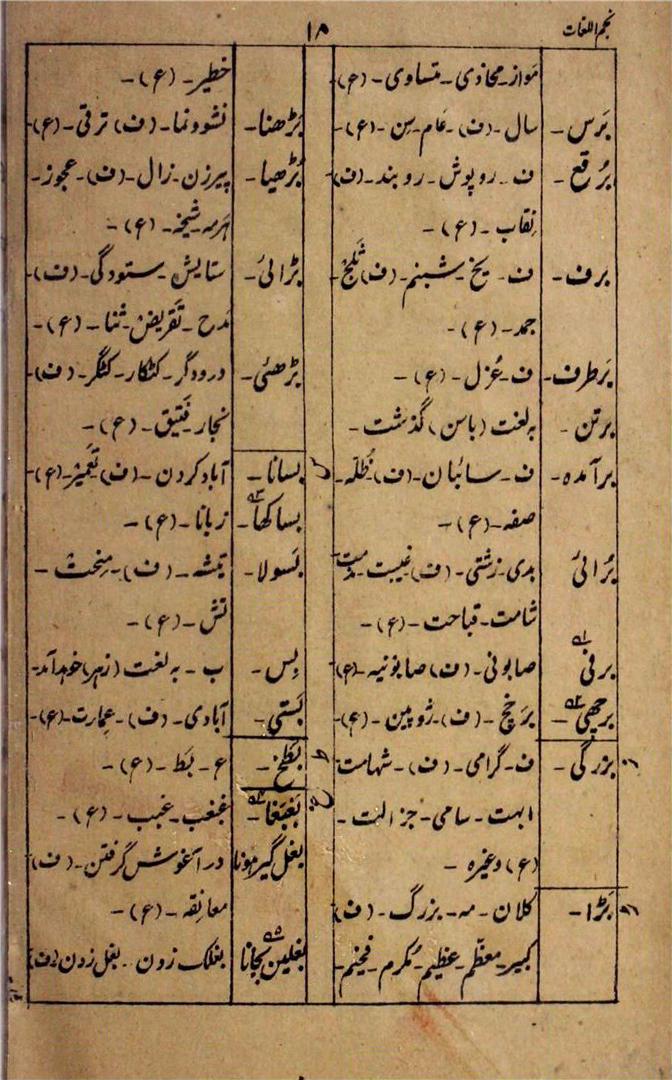 نجم اللغات
۱۵
مواز۔ محاذی۔ متساوی۔ (ع)۔
بَرَس۔ سال۔ (ف)۔ عَام۔ سِن۔ (ع)۔
بُرقع۔ ف۔ روپوش۔ روبند۔ (ف)
نِقاب۔ (ع)۔
برف۔ ف۔ یخ۔ شبنم۔ (ف) ثَلج۔
جمد۔ (ع)۔
بَرطرف۔ ف۔ عُزل۔ (ع)۔
برتن۔ بہ لغت (باسن) گذشت۔
برآمدہ۔ ف۔ سائبان۔ (ف) ظُلّہ۔
صفہ۔ (ع)۔
بُرائی بدی۔ زشتی۔ (ف) غیبت۔
شامت۔ قباحت۔ (ع)۔
برفی صابونی۔ (ف) صابونیہ۔ (ع)
برچھی۔ برخچ۔ (ف)۔ ژوپین۔ (ع)۔
بزرگی۔ ف۔ گرامی۔ (ف)۔ شہامت
ابہت۔ سامی۔ جزالت۔
(ع) وغیرہ۔
بَڑا۔ کلان۔ مہ۔ بزرگ۔ (ف)
کبیر۔ معظّم۔ عظیم۔ مُکرم۔ فخیم۔
خطیر۔ (ع)۔
بَڑھنا۔ نشوونما۔ (ف) ترقی۔ (ع)۔
بُڑھیا۔ پیرزن۔ زال۔ (ف)۔ عجوز۔
ہَرمہ۔ شیخہ۔ (ع)۔
بڑائی۔ ستایش۔ ستودگی۔ (ف)۔
مَدح۔ تَقریض۔ ثنا۔ (ع)۔
بڑھئی۔ درودگر۔ کٹکار۔ کٹگر۔ (ف)۔
نجار۔ فَیتَق۔ (ع)۔
بسانا۔ آباد کردن۔ (ف) تَعمِیر۔ (ع)۔
بساکھا۔ زبانا۔ (ع)۔
بَسولا۔ تیشہ۔ (ف)۔ مِنحث۔
تش۔ (ع)۔
بِس۔ ب۔ بہ لغت (زہر) خواہد آمد۔
بَستی۔ آبادی۔ (ف)۔ عِمارت۔ (ع)۔
بَطخ۔ ع۔ بَط۔ (ع)۔
بَغبَغا۔ غبغب۔ غبب۔ (ع)۔
بغل گیر ہونا درآغوش گرفتن۔ (ف)
معانقہ۔ (ع)۔
بغلین بجانا بغلک زدن۔ بغل زدن (ف)